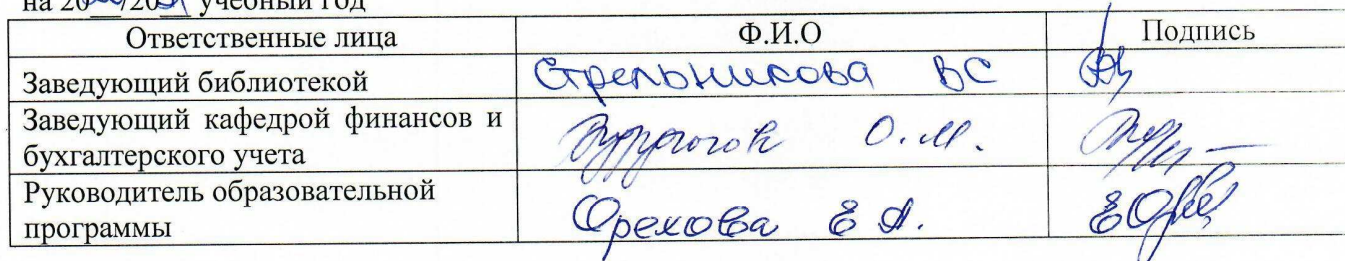 на 20 /20 учебный год
Ответственные лица Ф.И.О Подпись
Заведующий библиотекой Стрельникова ВС
Заведующий кафедрой финансов и
бухгалтерского учета О.М.
Руководитель образовательной
программы Орехова Е А.